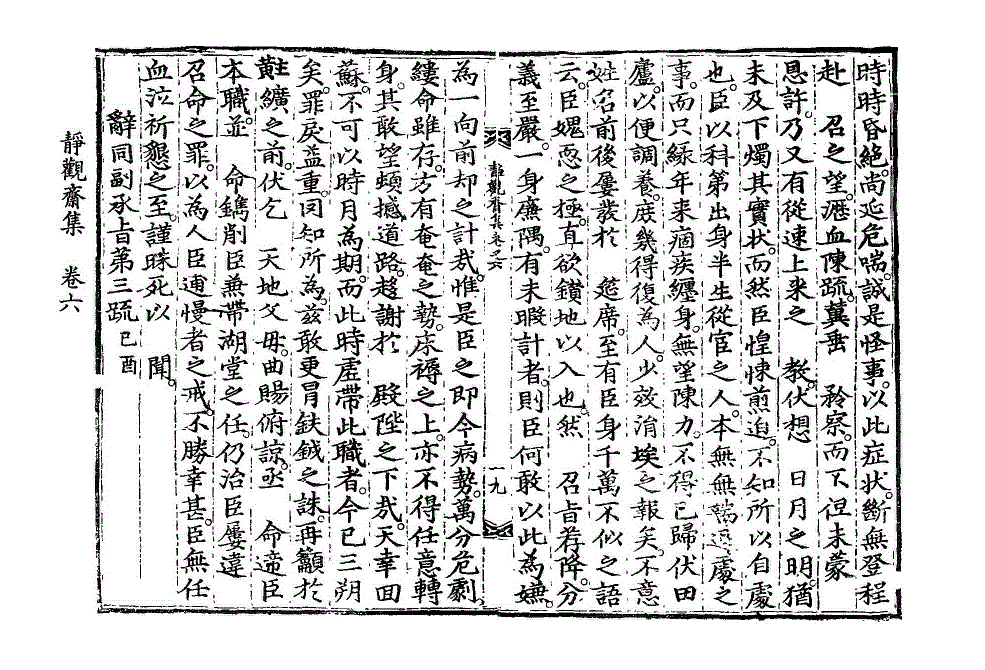 時時昏絶。尚延危喘。誠是怪事。以此症狀。斷無登程
赴 召之望。瀝血陳疏。冀垂 矜察。而不但未蒙
恩許。乃又有從速上來之 敎。伏想 日月之明。猶
未及下燭其實狀。而然臣惶悚煎迫。不知所以自處
也。臣以科第出身。半生從宦之人。本無無端退處之
事。而只緣年來痼疾纏身。無望陳力。不得已歸伏田
廬。以便調養。庶幾得復爲人。少效涓埃之報矣。不意
姓名前後屢發於 筵席。至有臣身千萬不似之語
云。臣媿恧之極。直欲鑽地以入也。然 召旨荐降。分
義至嚴。一身廉隅。有未暇計者。則臣何敢以此爲嫌。
靜觀齋集卷之六
九
爲一向前却之計哉。惟是臣之卽今病勢。萬分危劇。
縷命雖存。方有奄奄之勢。床褥之上。亦不得任意轉
身。其敢望頓撼道路。趍謝於 殿陛之下哉。天幸回
蘇。不可以時月爲期。而此時虛帶此職者。今已三朔
矣。罪戾益重。罔知所爲。玆敢更冒鈇鉞之誅。再籲於
黈纊之前。伏乞 天地父母。曲賜俯諒。亟 命遞臣
本職。並 命鐫削臣兼帶湖堂之任。仍治臣屢違
召命之罪。以爲人臣逋慢者之戒。不勝幸甚。臣無任
血泣祈懇之至。謹昧死以 聞。
辭同副承旨第三疏 己酉
靜觀齋集 卷六